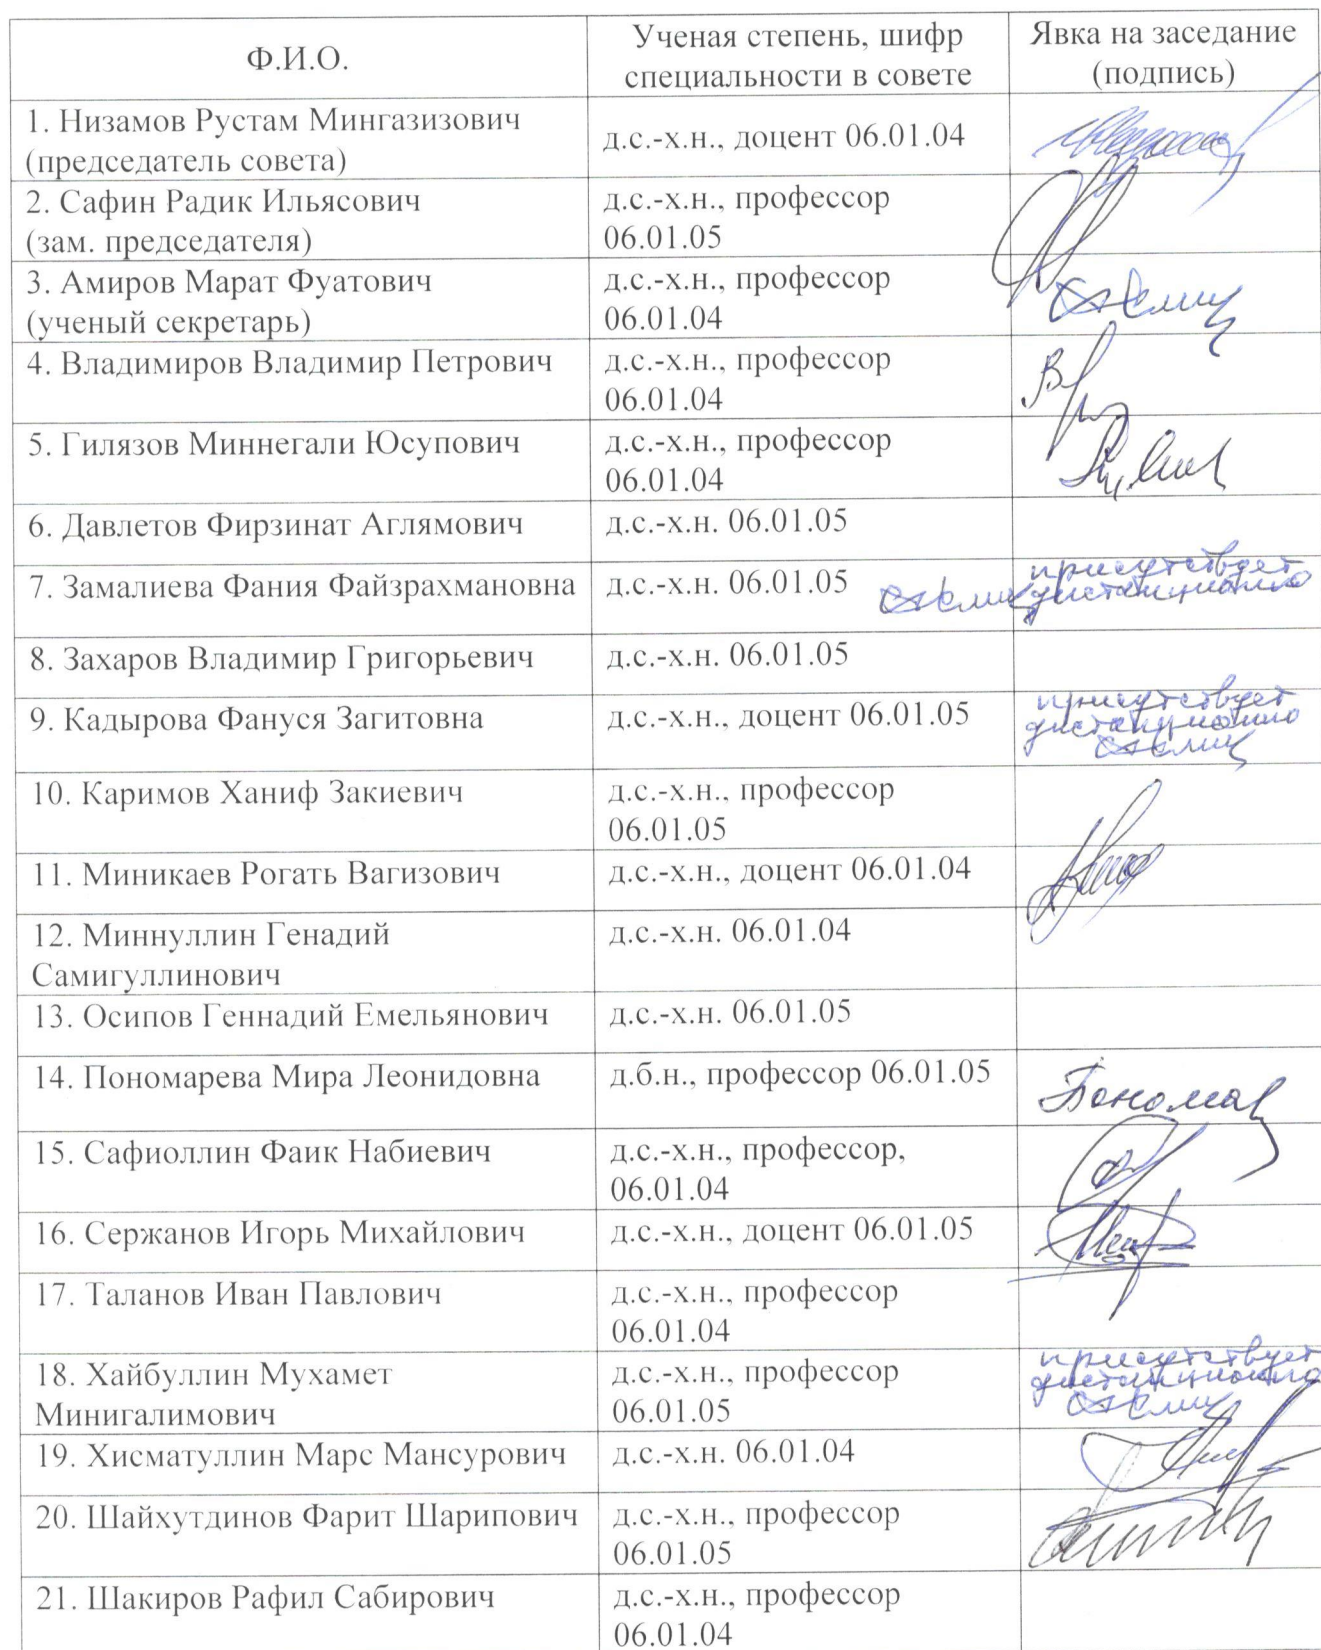 Ф.И.О.
Ученая степень, шифр
специальности в совете
Явка на заседание
(подпись)
1. Низамов Рустам Мингазизович
(председатель совета)
д.с.-х.н., доцент 06.01.04
2. Сафин Радик Ильясович
(зам. председателя)
д.с.-х.н., профессор
06.01.05
3. Амиров Марат Фуатович
(ученый секретарь)
д.с.-х.н., профессор
06.01.04
4. Владимиров Владимир Петрович
д.с.-х.н., профессор
06.01.04
5. Гилязов Миннегали Юсупович
д.с.-х.н., профессор
06.01.04
6. Давлетов Фирзинат Аглямович
д.с.-х.н. 06.01.05
7. Замалиева Фания Файзрахмановна
д.с.-х.н. 06.01.05
присутствует
дистанционно
8. Захаров Владимир Григорьевич
д.с.-х.н. 06.01.05
9. Кадырова Фануся Загитовна
д.с.-х.н., доцент 06.01.05
присутствует
дистанционно
10. Каримов Ханиф Закиевич
д.с.-х.н., профессор
06.01.05
11. Миникаев Рогать Вагизович
д.с.-х.н., доцент 06.01.04
12. Миннуллин Генадий
Самигуллинович
д.с.-х.н. 06.01.04
13. Осипов Геннадий Емельянович
д.с.-х.н. 06.01.05
14. Пономарева Мира Леонидовна
д.б.н., профессор 06.01.05
15. Сафиоллин Фаик Набиевич
д.с.-х.н., профессор,
06.01.04
16. Сержанов Игорь Михайлович
д.с.-х.н., доцент 06.01.05
17. Таланов Иван Павлович
д.с.-х.н., профессор
06.01.04
18. Хайбуллин Мухамет
Минигалимович
д.с.-х.н., профессор
06.01.05
присутствует
дистанционно
19. Хисматуллин Марс Мансурович
д.с.-х.н. 06.01.04
20. Шайхутдинов Фарит Шарипович
д.с.-х.н., профессор
06.01.05
21. Шакиров Рафил Сабирович
д.с.-х.н., профессор
06.01.04